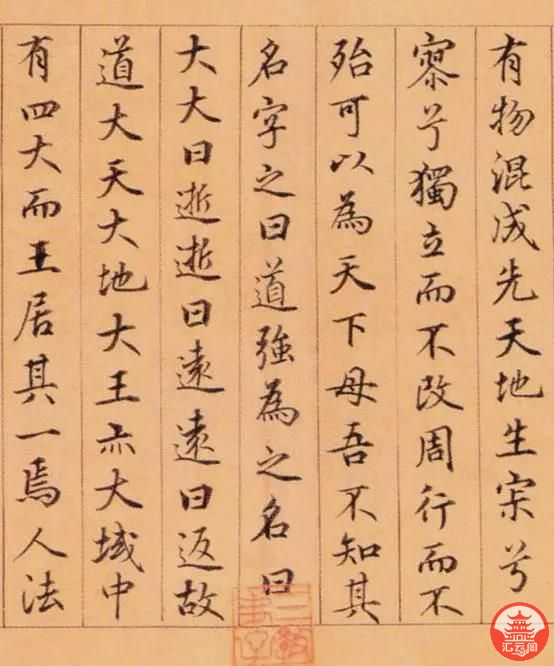 有物混成先天地生宋兮
寥兮獨立而不改周行而不
殆可以為天下母吾不知其
名字之曰道強為之名曰
大大曰逝逝曰遠遠曰返故
道大天大地大王亦大域中
有四大而王居其一焉人法
汇云阁